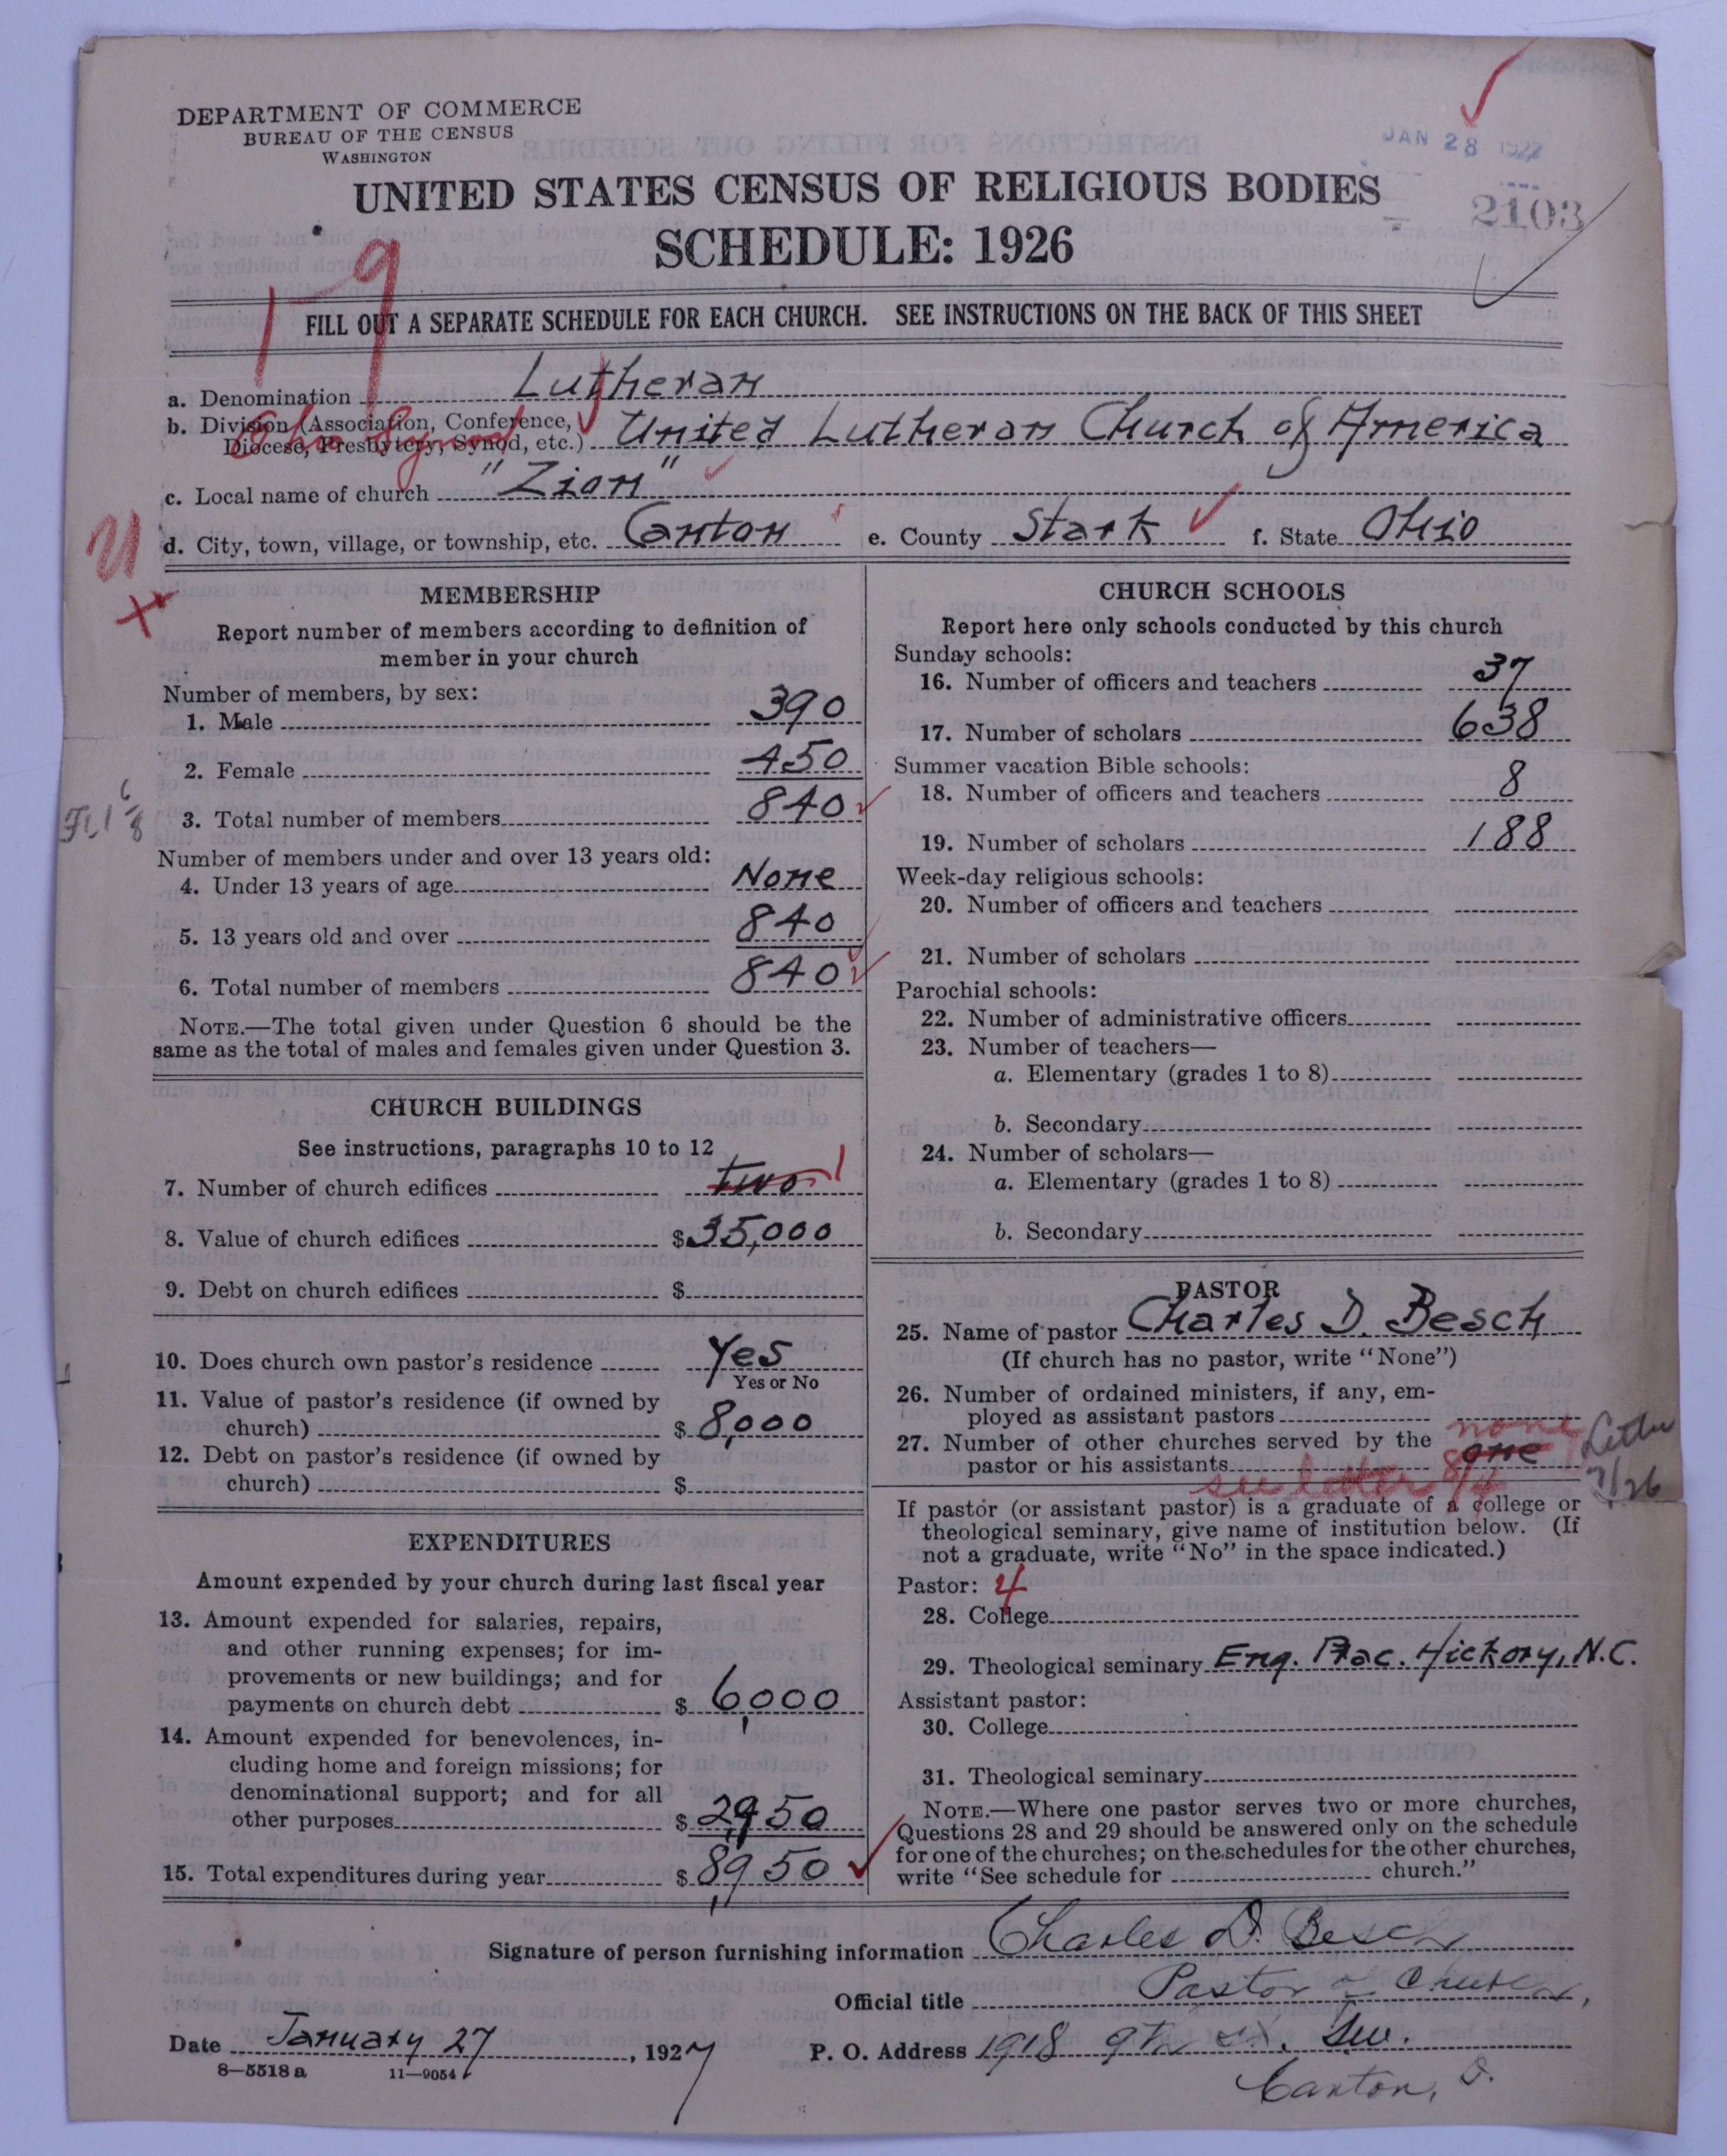 DEPARTMENT OF COMMERCE
BUREAU OF THE CENSUS
WASHINGTON
JAN 28 1927
UNITED STATES CENSUS OF RELIGIOUS BODIES
2103
SCHEDULE: 1926
1-9
FILL OUT A SEPARATE SCHEDULE FOR EACH CHURCH. SEE INSTRUCTIONS ON THE BACK OF THIS SHEET
a. Denomination Lutheran
b. Division (Association, Conference,
Diocese, Presbytery, Synod, etc.) United Lutheran Church of America
Ohio Synod
c. Local name of church "Zion"
d. City, town, village, or township, etc. Canton e. County Stark f. State Ohio
MEMBERSHIP
Report number of members according to definition of
member in your church
Number of members, by sex:
1. Male 390
2. Female 450
3. Total number of members 840
Number of members under and over 13 years old:
4. Under 13 years of age None
5. 13 years old and over 840
6. Total number of members 840
NOTE.—The total given under Question 6 should be the
same as the total of males and females given under Question 3.
CHURCH BUILDINGS
See instructions, paragraphs 10 to 12
7. Number of church edifices two 1
8. Value of church edifices $35,000
9. Debt on church edifices $
10. Does church own pastor's residence Yes
Yes or No
11. Value of pastor's residence (if owned by
church) $8,000
12. Debt on pastor's residence (if owned by
church) $
EXPENDITURES
Amount expended by your church during last fiscal year
13. Amount expended for salaries, repairs,
and other running expenses; for im-
provements or new buildings; and for
payments on church debt $6,000
14. Amount expended for benevolences, in-
cluding home and foreign missions; for
denominational support; and for all
other purposes $2,950
15. Total expenditures during year $8,950
CHURCH SCHOOLS
Report here only schools conducted by this church
Sunday schools:
16. Number of officers and teachers 37
17. Number of scholars 638
Summer vacation Bible schools:
18. Number of officers and teachers 8
19. Number of scholars 188
Week-day religious schools:
20. Number of officers and teachers
21. Number of scholars
Parochial schools:
22. Number of administrative officers
23. Number of teachers—
a. Elementary (grades 1 to 8)
b. Secondary
24. Number of scholars—
a. Elementary (grades 1 to 8)
b. Secondary
PASTOR
25. Name of pastor Charles D. Besch
(If church has no pastor, write "None")
26. Number of ordained ministers, if any, em-
ployed as assistant pastors
27. Number of other churches served by the none
pastor or his assistants one
see letter 8/4
Letter 7/26
If pastor (or assistant pastor) is a graduate of a college or
theological seminary, give name of institution below. (If
not a graduate, write "No" in the space indicated.)
Pastor: 4
28. College
29. Theological seminary Eng. Prac. Hickory, N.C.
Assistant pastor:
30. College
31. Theological seminary
NOTE.—Where one pastor serves two or more churches,
Questions 28 and 29 should be answered only on the schedule
for one of the churches; on the schedules for the other churches,
write "See schedule for church."
Signature of person furnishing information Charles D. Besch
Official title Pastor of Church,
Date January 27, 1927 P. O. Address 1918 9th st. SW.
8—5518 a 11—9054 Canton, O.